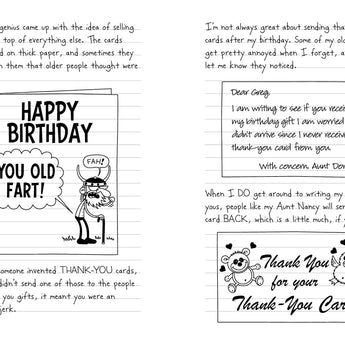 genius came up with the idea of selling
top of everything else. The cards
d on thick paper, and sometimes they
n them that older people thought were
HAPPY
BIRTHDAY
FAH!
YOU OLD
FART!
omeone invented THANK-YOU cards,
didn't send one of those to the people
you gifts, it meant you were an
jerk.
I'm not always great about sending tha
cards after my birthday. Some of my old
get pretty annoyed when I forget, a
let me know they noticed.
Dear Greg,
I am writing to see if you recei
my birthday gift I am worried
didn't arrive since I never receiv
thank-you card from you.
With concern, Aunt Do
When I DO get around to writing my
yous, people like my Aunt Nancy will sen
card BACK, which is a little much, if y
Thank You
for your
Thank-You Car